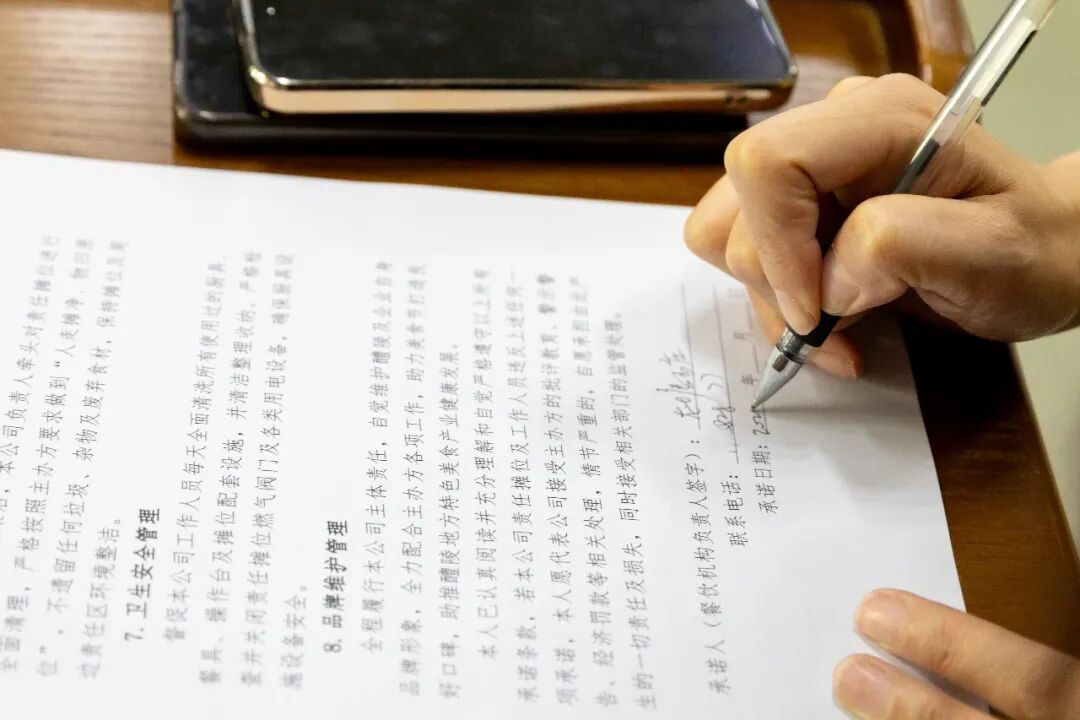 本公司负责人牵头对责任摊位进行
全面清理，严格按照主办方要求做到“人走摊净、物归原
位”，不遗留任何垃圾、杂物及废弃食材，保持摊位及周
边责任区环境整洁。
7. 卫生安全管理
督促本公司工作人员每天全面清洗所有使用过的厨具、
餐具、操作台及摊位配套设施，并清洁整理收纳。严格检
查并关闭责任摊位燃气阀门及各类用电设备，确保厨具设
施设备安全。
8. 品牌维护管理
全程履行本公司主体责任，自觉维护醴陵及企业自身
品牌形象，全力配合主办方各项工作，助力美食节打造良
好口碑，助推醴陵地方特色美食产业健康发展。
本人已认真阅读并充分理解和自觉严格遵守以上所有
承诺条款，若本公司责任摊位及工作人员违反上述任何一
项承诺，本人愿代表公司接受主办方的批评教育、警示警
告、经济罚款等相关处理，情节严重的，自愿承担由此产
生的一切责任及损失，同时接受相关部门的监管处理。
承诺人（餐饮机构负责人签字）：
联系电话：
承诺日期：20 年 月 日